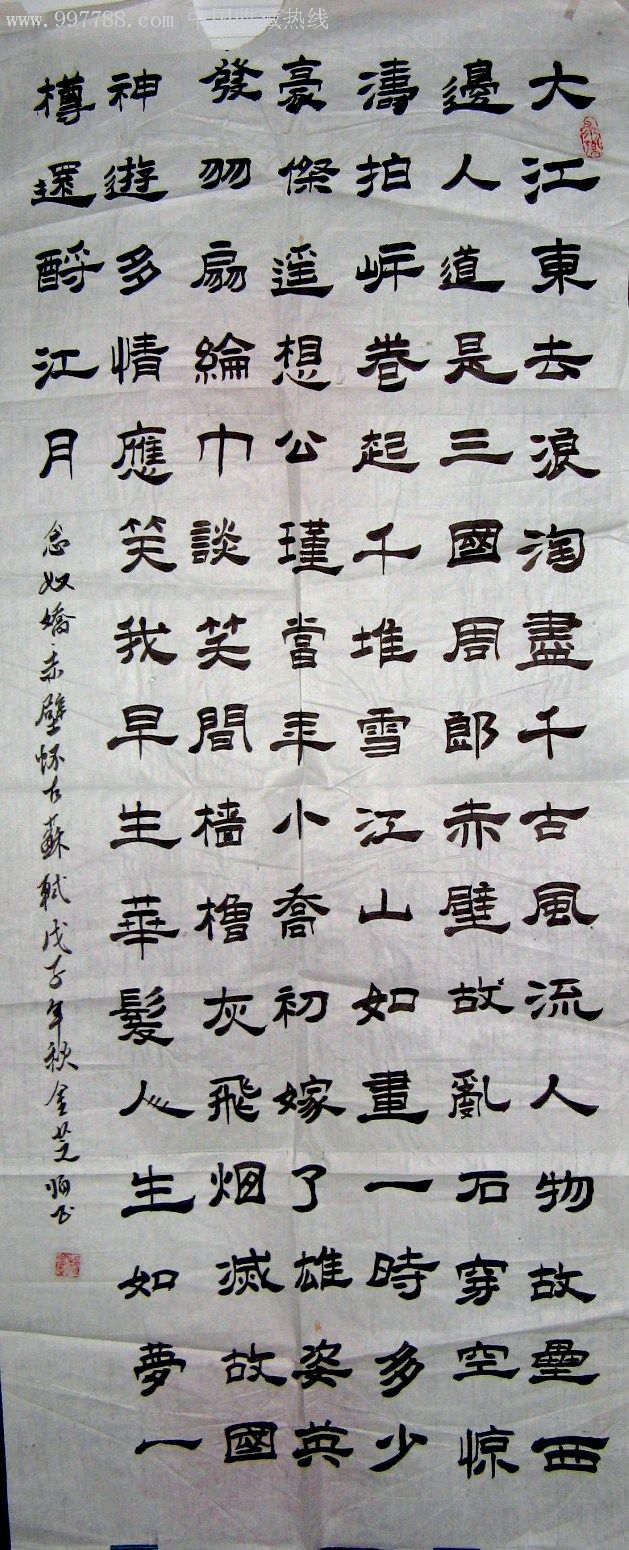 www.997788.com 中国收藏热线
大江東去浪淘盡千古風流人物故壘西
邊人道是三國周郎赤壁故亂石穿空惊
濤拍岸卷起千堆雪江山如畫一時多少
豪傑遥想公瑾當年小喬初嫁了雄姿英
發羽扇綸巾談笑間檣櫓灰飛烟滅故國
神遊多情應笑我早生華髮人生如夢一
樽還酹江月
念奴嬌·赤壁怀古蘇軾戊子年秋金芝书